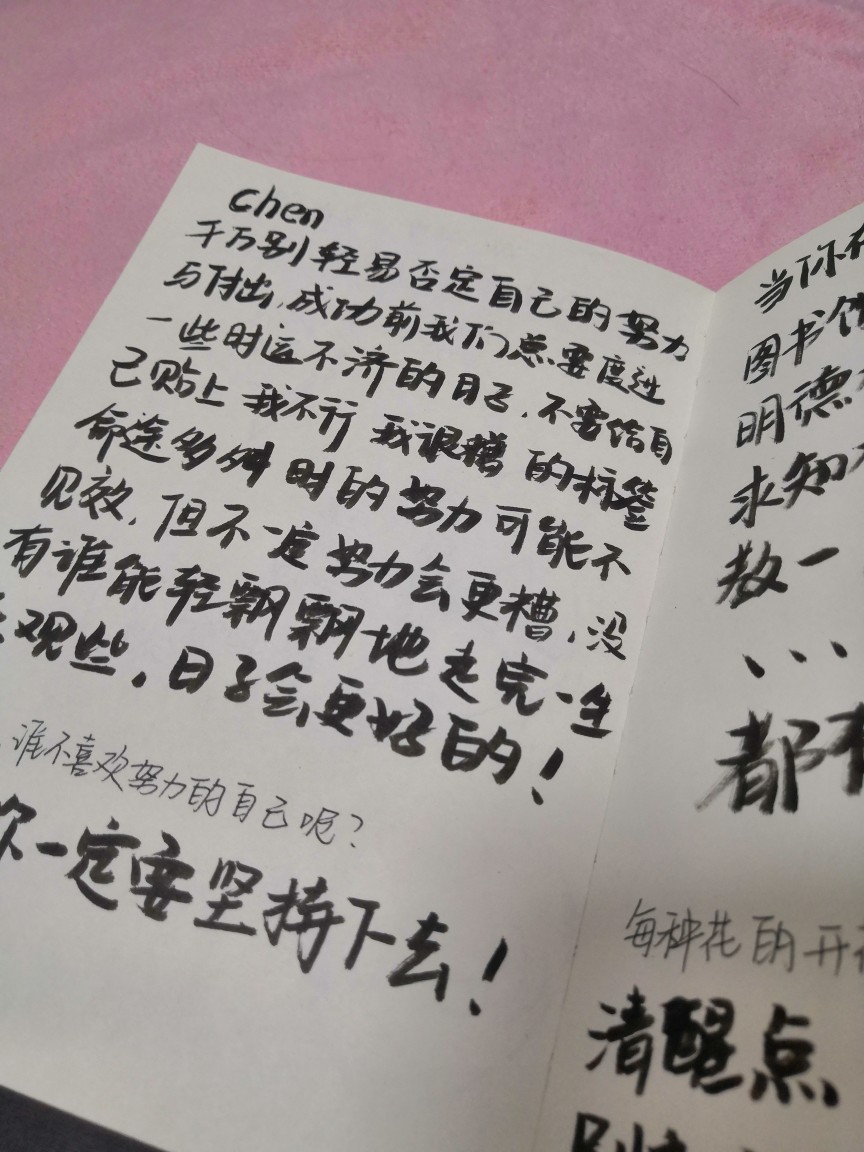 Chen
千万别轻易否定自己的努力
与付出,成功前我们总要度过
一些时运不济的日子,不要给自
己贴上 我不行 我很糟 的标签
命途多舛时的努力可能不
见效,但不一定努力会更糟,没
有谁能轻飘飘地走完一生
观些,日子会更好的!
谁不喜欢努力的自己呢?
你一定要坚持下去!
当你在
图书馆
明德
求知
数一
...
都有
每种花的开
清醒点
别